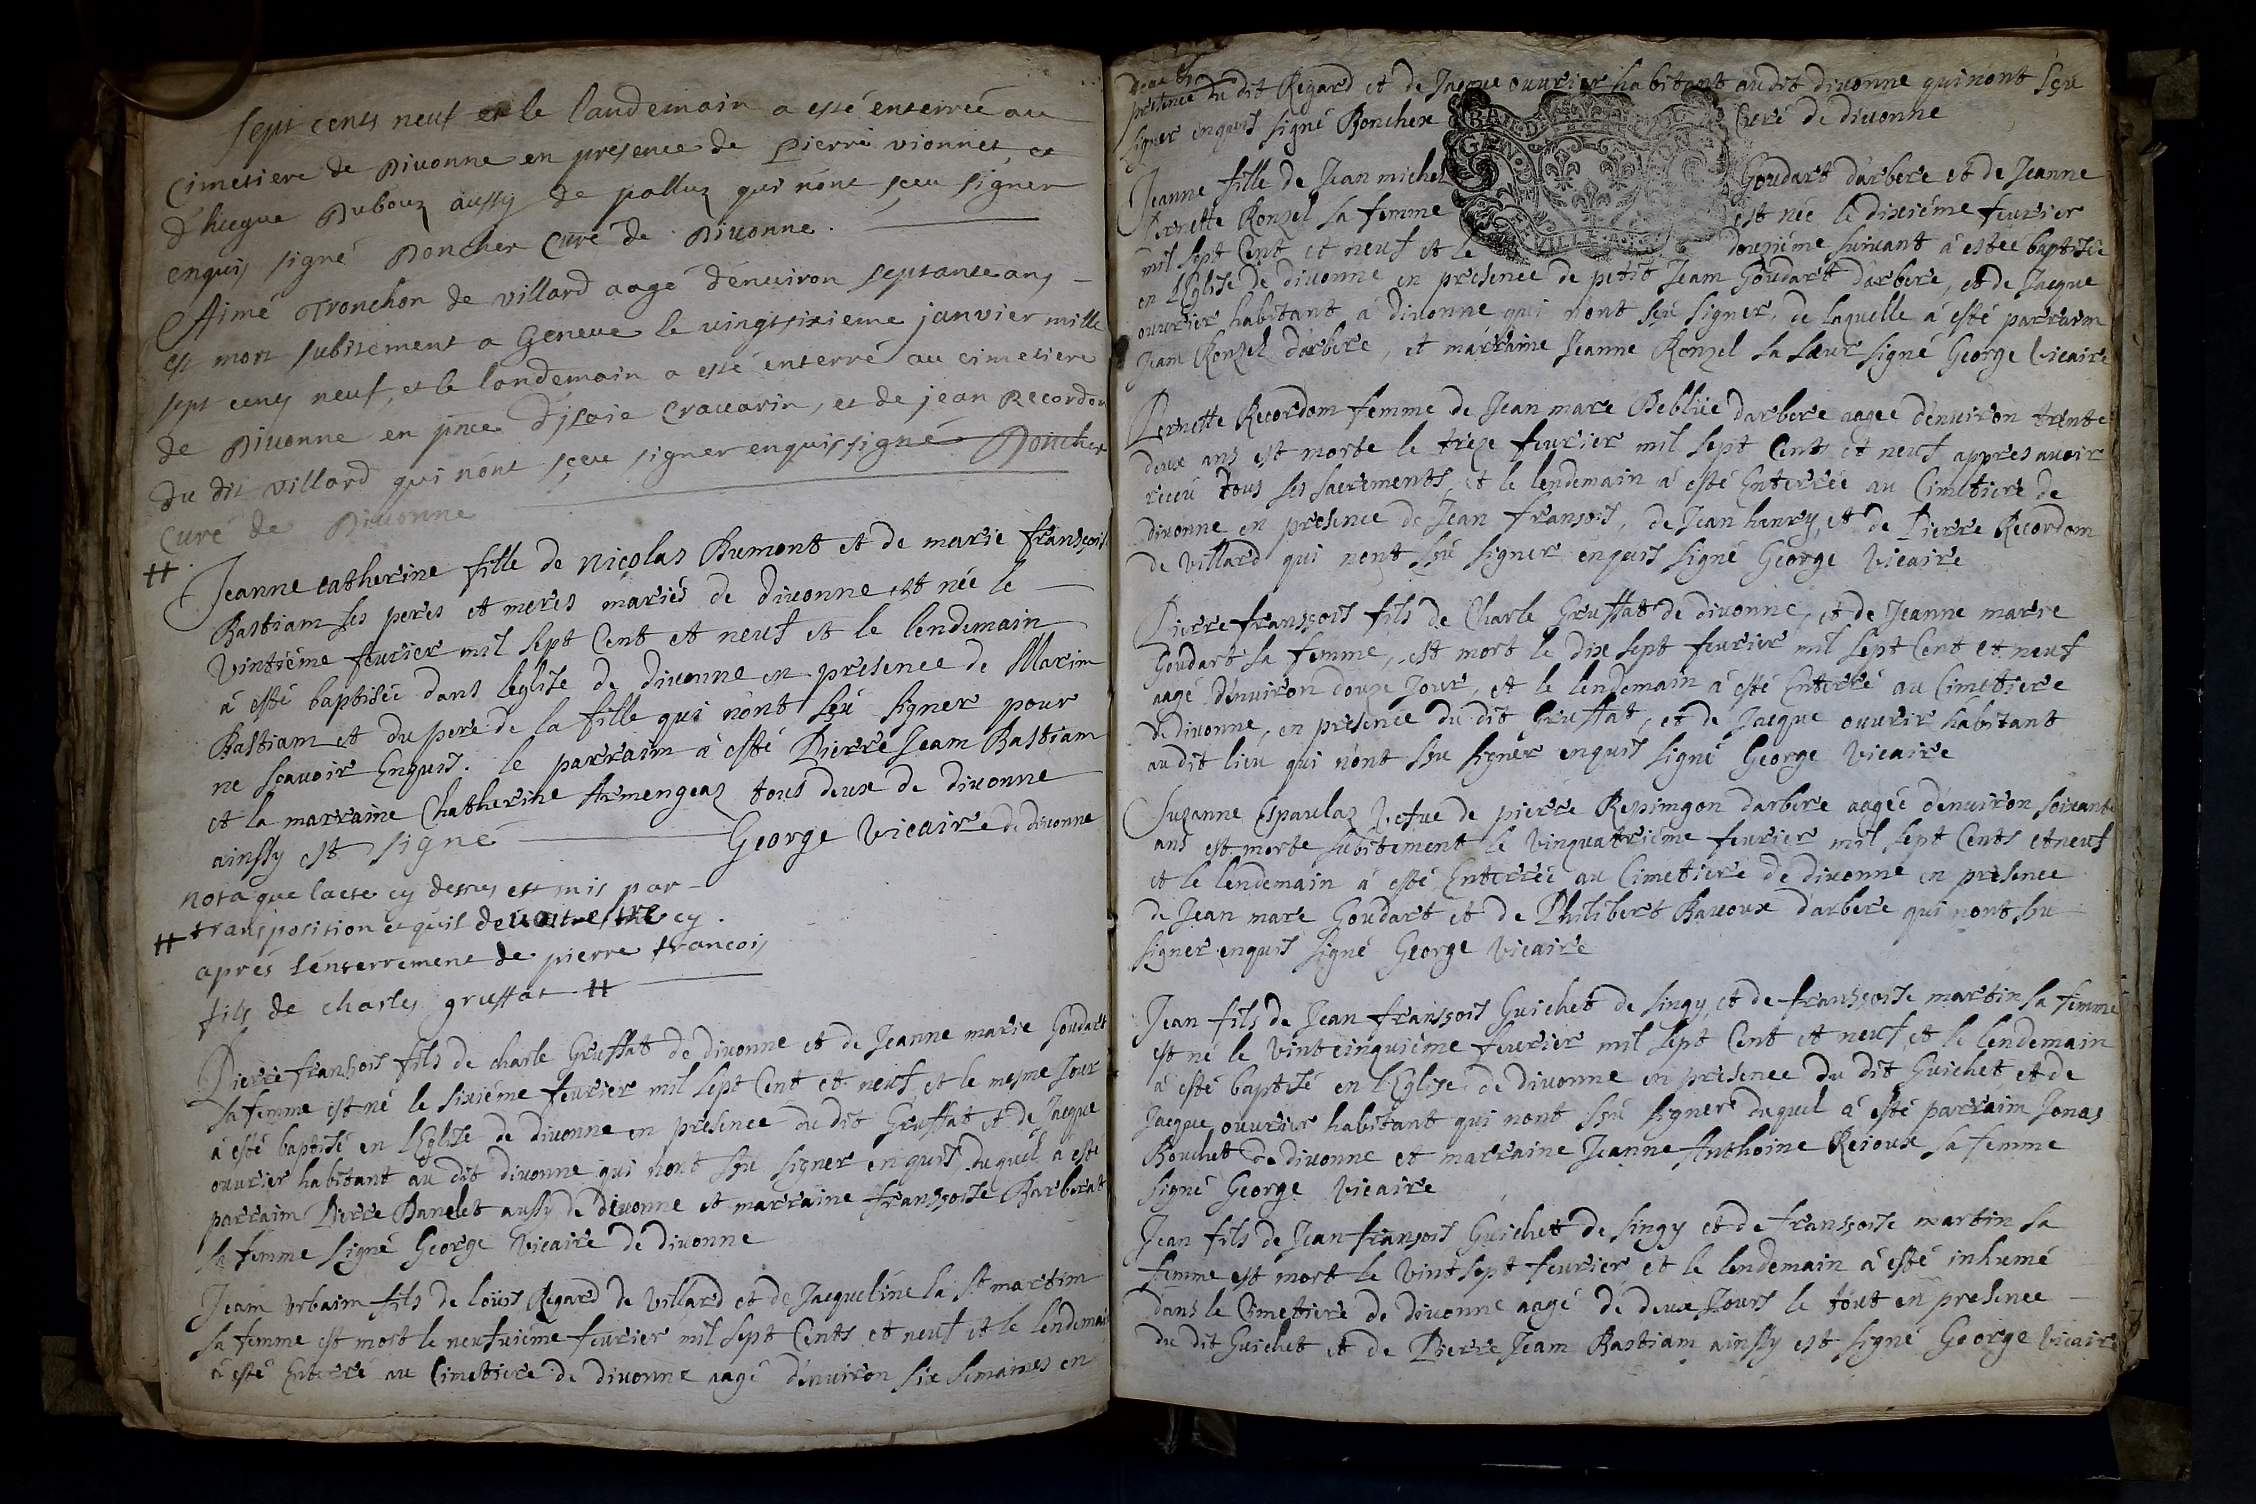 sept cents neuf et le landemain a esté enterrée au
cimetiere de Divonne en presence de pierre vionnet, et
d'hugue Dubouz aussy de polluz qui n'ont sçeu signer
enquis signé Doncher Curé de Divonne.
Aimé Tronchon de villard aagé d'environ septante ans
est mort subitement a Geneve le vingtsixieme janvier mille
sept cents neuf, et le landemain a esté enterré au cimetiere
de Divonne en pnce d'isaie Cravarin, et de jean Recordon
du dit villard qui n'ont sçeu signer enquis signé Doncher
Curé de Divonne
# Jeanne catherine fille de nicolas Dumont et de marie fransçoise
Bastiam ses peres et meres mariés de divonne est née le
vintiéme fevrier mil sept Cent et neuf et le lendemain
à esté baptisée dans léglise de divonne en presence de Marim
Bastiam et du pere de la fille qui nónt séu signer pour
ne scavoir Enquis. le parraim à esté Pierre Jeam Bastiam
et la marraine Chatherine Armengeaz tous deux de divonne
ainsy est signé George vicaire de divonne
nota que lacte cy dessus est mis par
# transposition et qu'il devoit estre cy
aprés l'enterrement de pierre francois
fils de charles gruffat #
Pierre fransçois fils de charle Gruffat de divonne et de Jeanne marie Goudart
sa femme est né le sixiéme fevrier mil sept Cent et neuf et le mesme Jour
à esté baptisé en l'Eglise de divonne en presence du dit Gruffat et de Jacque
ouvrier habitant au dit divonne qui nont sçu signer enquis, duquel a esté
parraim Pierre Banelet aussy de divonne et marraine fransçoise Barberat
sa femme signé George vicaire de divonne
Jeam vrbaim fils de loüis Regard de villard et de Jacqueline la St martim
sa femme est mort le neufvieme fevrier mil sept Cents et neuf et le lendemain
à esté Enterré au Cimetiere de divonne aagé d'environ six semaines en
presence du dit Regard et de Jacque ouvrier habitant audit divonne qui nont sçu
signer enquis signé Boncher Curé de divonne
Jeanne fille de Jean michel Goudart d'arbere et de Jeanne
Pernette Ronzel sa femme est née le dixiéme fevrier
mil sept Cent et neuf et le douziéme suivant à estée baptisée
en l'Eglise de divonne en presence de petit Jeam Goudart d'arbere, et de Jacque
ouvrier habitant à divonne qui nont séu signer, de laquelle à esté parraim
Jeam Ronzel d'arbere, et márraine Jeanne Ronzel sa sœur signé George vicaire
Pernette Recordom femme de Jean marc Beblüe d'arbere aagee d'environ trinte
deux ans est morte le treze fevrier mil sept Cents et neuf apprés avoir
receü tous ses sacrements, et le lendemain à esté Enterrée au Cimetiere de
divonne en presence de Jean fransois, de Jean hanry, et de Pierre Recordom
de villard qui nont sçu signer enquis signé George vicaire
Pierre fransçois fils de Charle Gruffat de divonne, et de Jeanne marie
Goudart sa femme, est mort le dix sept fevrier mil sept Cent et neuf
aagé d'environ douze Jour, et le lendemain à esté Enterré au Cimetiere
de divonne, en presence du dit Gruffat, et de Jacque ouvrir habitant
audit lieu qui nont sçu signer enquis signé George vicaire
Suzanne Espaulaz vefue de pierre Repingon d'arbere aagée d'environ soixante
ans est morte subitement le vinquatriéme fevrier mil sept Cents et neuf
et le lendemain à esté Enterrée au Cimetiere de divonne en presence
de Jean marc Goudart et de Philibert Bavoux d'arbere qui nont su
signer enquis signé George vicaire
Jean fils de Jean fransçois Guichet de singy, et de fransçoise martin sa femme
est né le vint cinquiéme fevrier mil sept Cent et neuf, et le lendemain
à esté baptisé en l'Eglise de divonne en presence du dit Guichet et de
Jacque ouvrier habitant qui nont sçu signer duquel à esté parraim Jonas
Bouchet de divonne et marraine Jeanne Anthoine Reioux sa femme
signé George vicaire
Jean fils de Jean fransois Guichet de singy et de fransçoise martin sa
femme est mort le vint sept fevrier, et le lendemain à esté inhumé
dans le Cimetiere de divonne aagé de deux Jours le tout en presence
du dit Guichet et de Pierre Jeam Bastiam ainsy est signé George vicaire